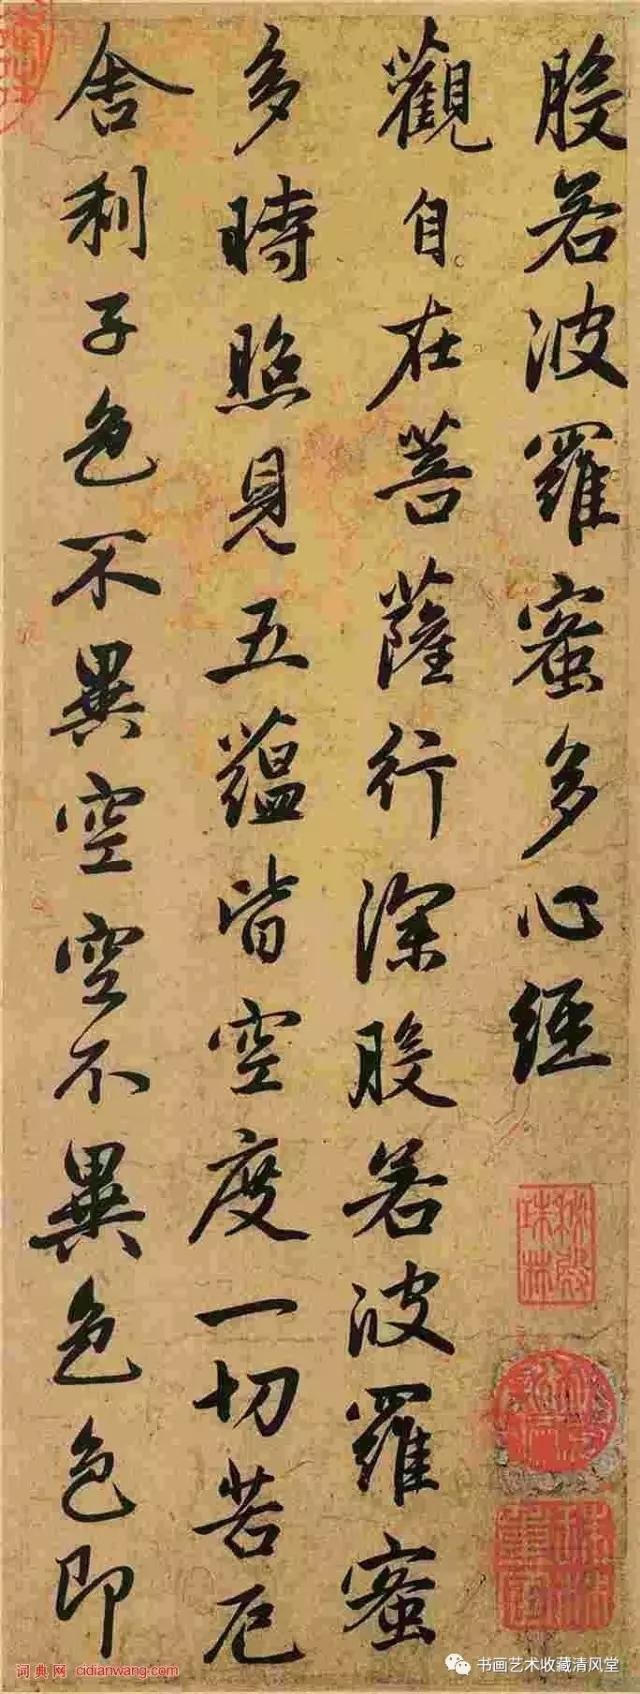 般若波羅蜜多心經
觀自在菩薩行深般若波羅蜜
多時照見五蘊皆空度一切苦厄
舍利子色不異空空不異色色即
秘殿珠林
词典网 cidianwang.com
书画艺术收藏清风堂